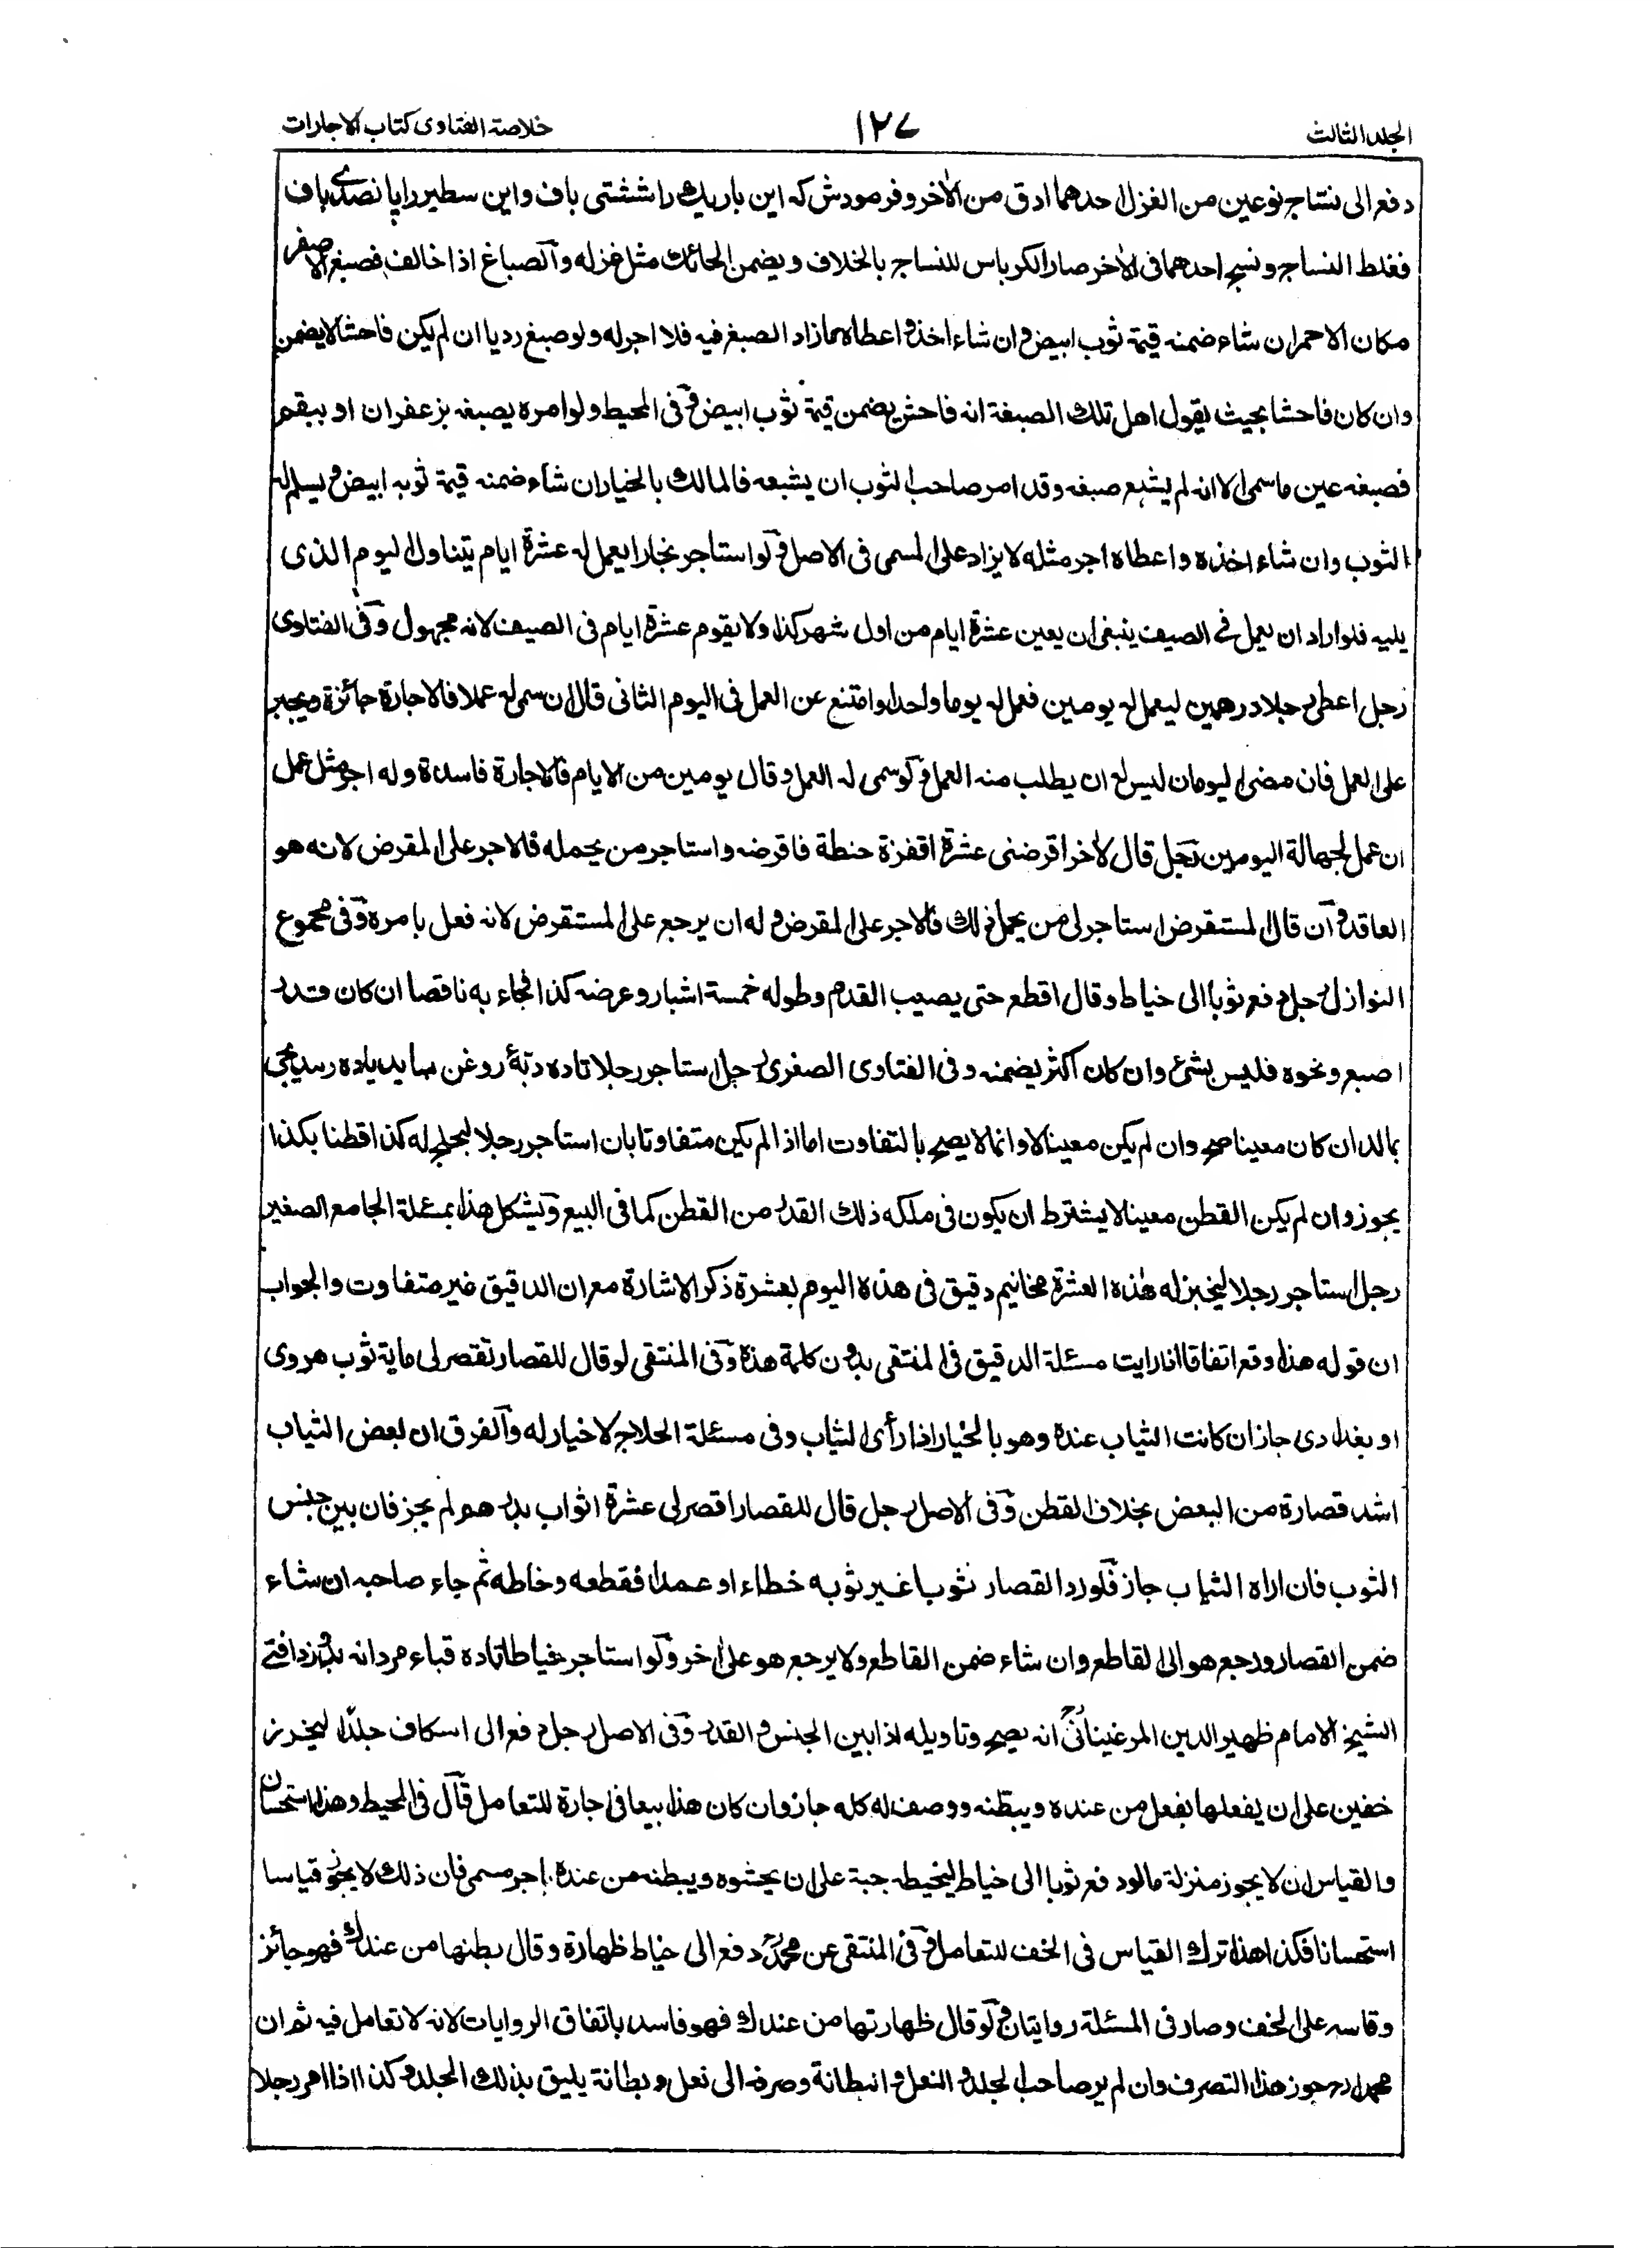 الجلد الثالث
١٢٧
خلاصة الفتاوى كتاب الاجارات
دفع الى نساج نوعين من الغزل احدهما ادق من الاٰخر و فرمودش كه اين باريك را ششتى باف واين سطبر را پا نصدى باف
فغلط النساج ونسج احدهما فى الاٰخر صار الكرباس للنساج بالخلاف ويضمن الحائك مثل غزله والصباغ اذا خالف فصبغ الاصفر
مكان الاحمر ان شاء ضمنه قيمة ثوب ابيض وان شاء اخذه واعطاه مازاد الصبغ فيه فلا اجر له ولو صبغ رديا ان لم يكن فاحشا لايضمن
وان كان فاحشا بحيث يقول اهل تلك الصبغة انه فاحش يضمن قيمة ثوب ابيض وفى المحيط ولو امره يصبغه بزعفران او ببقم
فصبغه عين ما سمى الا انه لم يشبع صبغه وقد امر صاحب الثوب ان يشبعه فالمالك بالخيار ان شاء ضمنه قيمة ثوبه ابيض و يسلم له
الثوب وان شاء اخذه واعطاه اجر مثله لا يزاد على المسمى فى الاصل ولو استاجر نجارا يعمل له عشرة ايام يتناول اليوم الذى
يليه فلو اراد ان يعمل فى الصيف ينبغى ان يعين عشرة ايام من اول شهر كذا ولا يقوم عشرة ايام فى الصيف لانه مجهول وفى الفتاوى
رجل اعطى رجلا درهمين ليعمل له يومين فعمل له يوما واحدا وامتنع عن العمل فى اليوم الثانى قال ان سمى له عملا فالاجارة جائزة ويجبر
على العمل فان مضى اليومان ليس له ان يطلب منه العمل ولو سمى له العمل وقال يومين من الايام فالاجارة فاسدة وله اجر مثل عمل
ان عمل لجهالة اليومين رجل قال لاٰخر اقرضنى عشرة اقفزة حنطة فاقرضه واستاجر من يحمله فالاجر على المقرض لانه هو
العاقد وان قال المستقرض استاجر لى من يحمل ذلك فالاجر على المقرض وله ان يرجع على المستقرض لانه فعل بامره وفى مجموع
النوازل رجل دفع ثوبا الى خياط وقال اقطع حتى يصيب القدم وطوله خمسة اشبار وعرضه كذا فجاء به ناقصا ان كان قدر
اصبع ونحوه فليس بشئ وان كان اكثر يضمنه وفى الفتاوى الصغرى رجل استاجر رجلا تاده دبۀ روغن
بمالد ان كان معينا صح وان لم يكن معينا لا وانما لا يصح بالتفاوت اما اذا لم يكن متفاوتا بان استاجر رجلا ليحلج له كذا قطنا بكذا
يجوز وان لم يكن القطن معينا لا يشترط ان يكون فى ملكه ذلك القدر من القطن كما فى البيع ويشكل هذا بمسئلة الجامع الصغير
رجل استاجر رجلا ليخبز له هٰذه العشرة مخاتيم دقيق فى هذه اليوم بعشرة ذكر الاشارة مع ان الدقيق غير متفاوت والجواب
ان قوله هذا وقع اتفاقا انا رايت مسئلة الدقيق فى المنتقى بدون كلمة هذه وفى المنتقى لو قال للقصار تقصر لى ماية ثوب هروى
او بغدادى جاز ان كانت الثياب عنده وهو بالخيار اذا رأى الثياب وفى مسئلة الحلاج لا خيار له والفرق ان بعض الثياب
اشد قصارة من البعض بخلاف القطن وفى الاصل رجل قال للقصار اقصر لى عشرة اثواب بدرهم لم يجز فان بين جنس
الثوب فان اراه الثياب جاز فلو رد القصار ثوبا غير ثوبه خطاء او عمدا فقطعه وخاطه ثم جاء صاحبه ان شاء
ضمن القصار ورجع هو الى القاطع وان شاء ضمن القاطع ولا يرجع هو على اٰخر ولو استاجر خياطا تاده قباء مردانه بدوزد افتى
الشيخ الامام ظهير الدين المرغينانى رح انه يصح وتاويله اذا بين الجنس والقدر وفى الاصل رجل دفع الى اسكاف جلدًا ليخرز
خفين على ان يفعلها بفعل من عنده ويبطنه ووصف له كله جاز وان كان هذا بيعا فى اجارة للتعامل قال فى المحيط وهذا استحسان
والقياس ان لا يجوز منزلة ما لو دفع ثوبا الى خياط ليخيطه جبة على ان يحشوه ويبطنه من عنده باجر مسمى فان ذلك لا يجوز قياسا
استحسانا فكذا هذا ترك القياس فى الخف للتعامل وفى المنتقى عن محمد رح دفع الى خياط ظهارة وقال بطنها من عندك فهو جائز
وقاسه على الخف وصار فى المسئلة روايتان ولو قال ظهارتها من عندك فهو فاسد باتفاق الروايات لانه لا تعامل فيه ثم ان
محمدا رح جوز هذا التصرف وان لم ير صاحب الجلد والنعل و انبطانة وصرفه الى نعل وبطانة يليق بذلك الجلد وكذا اذا امر رجلا